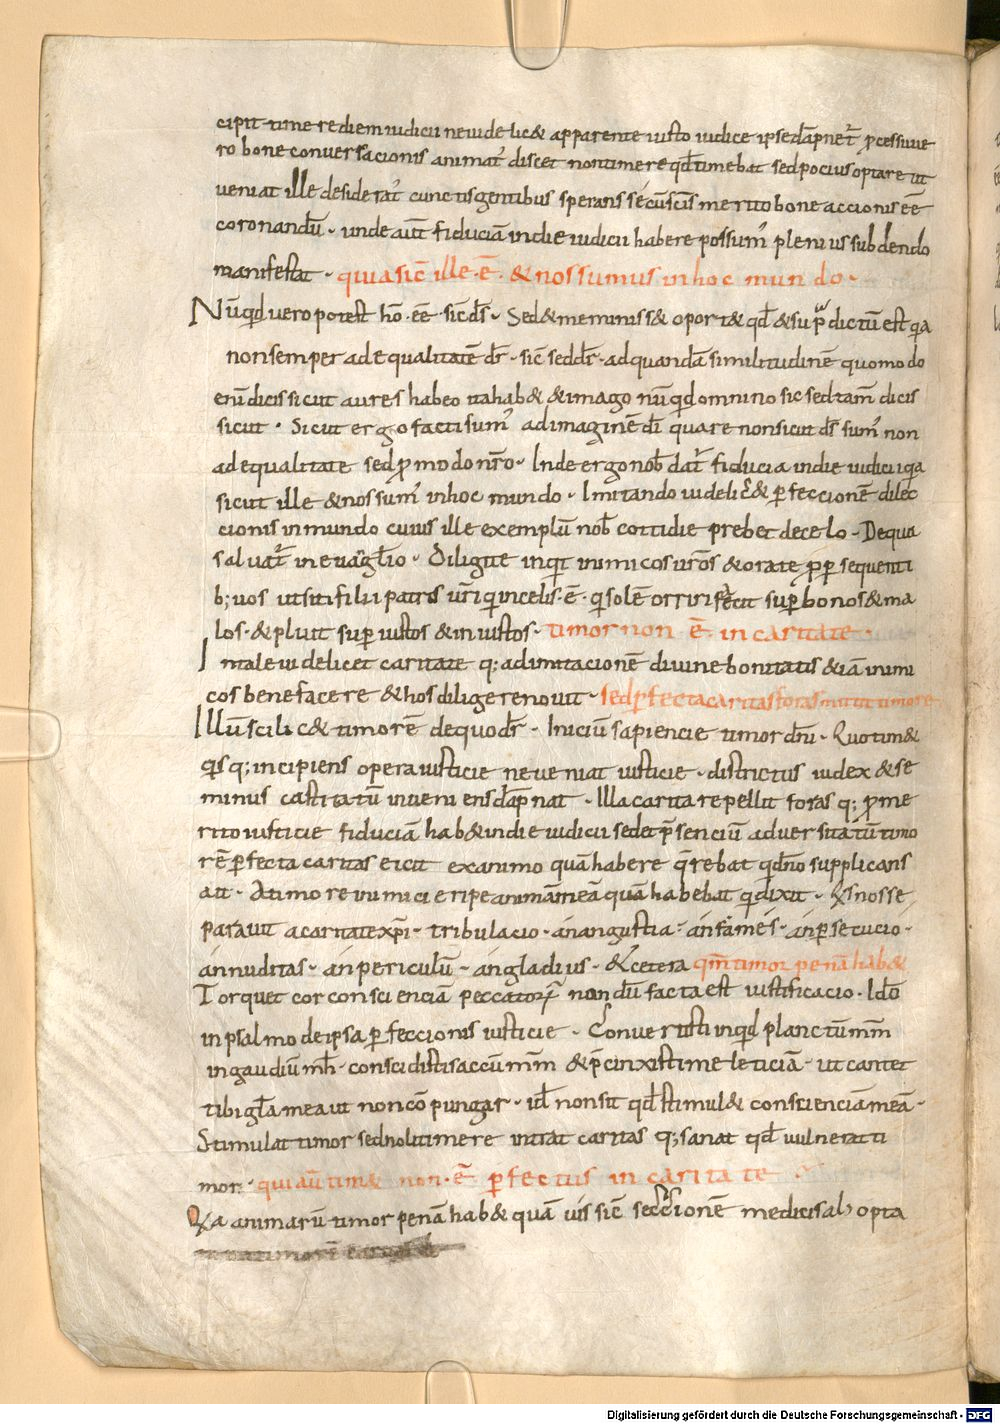 cipit timere diem iudicii ne uidelic& apparente iusto iudice ipse dāpnet᷒ ꝓcessu uue
ro bone conuersacionis animat᷒ discet non timere qd̄ timebat sed pocius optare ut
ueniat ille desiderat᷒ cunctis gentibus sperans se cū sc̄is merito bone accionis eē
coronandū · unde aut̄ fiduciā in die iudicii habere possum᷒ plenius subdendo
manifestat · quia sic̄ ille · ē · & nos sumus in hoc mundo ·
Nūqd uero potest ho᷒ · eē · sic̄ ds̄ · Sed & meminiss& oport& qd̄ & sup̄ dictū est q̄a
non semper ad equalitatē dr̄ · sic̄ sed dr̄ · ad quandā similitudinē quomodo
enī dicis sicut aures habeo ita hab& & imago nūqd omnino sic sed tam̄ dicis
sicut · Sicut ergo facti sum᷒ ad imaginē dī quare non sicut ds̄ sum᷒ non
ad equalitate sed ꝓ modo nr̄o · Inde ergo nob̄ dat᷒ fiducia in die iudicii q̄a
sicut ille & nos sum᷒ in hoc mundo · Imitando uidelic& ꝑfeccionē dilec
cionis in mundo cuius ille exemplū nob̄ cottidie prebet de celo · De qua
saluat᷒ in euāgl̄io · Diligite inqt inimicos uros̄ & orate ꝓ ꝑsequenti
b; uos ut sitis filii patris ur̄i qi in celis · ē · qi solē oriri fecit suꝑ bonos & ma
los · & pluit suꝑ iustos & iniustos · timor non ē in caritate ·
In tale uidelicet caritate q; ad imitacionē diuine bonitatis & iā inimi
cos benefacere & hos diligere nouit · sed ꝑfecta caritas foras mittit timorē
Illū scilic& timorē de quo dr̄ · Iniciū sapiencie timor dn̄i · Quo tim&
qis q; incipiens opera iusticie ne ueniat iusticie · districtus iudex & se
minus castitatū inueniens dāpnat · Illa carita repellit foras q; ꝓ me
rito iusticie fiduciā hab& in die iudicii sed et p̄senciū aduersitatū timo
rē ꝑfecta caritas eicit ex animo quā habere q̄rebat qd n̄o supplicans
ait · A timore inimici eripe animā meā quā habebat qi dixit · Qis nos se
parauit a caritate xp̄i · tribulacio · an angustia · an fames · an ꝑsecucio ·
an nuditas · an periculū · an gladius · & cetera qm̄ timor penā hab&
Torquet cor conscienciā peccatorꝝ nondū facta est iustificacio · Ido᷒
in psalmo de ipsa ꝑfeccionis iusticie · Conuertisti inqd planctū mm̄
in gaudiū m̄h · conscidisti saccū mm̄ & p̄cinxisti me leticiā · ut cantet
tibi gl̄a mea ut non cōpungar · id̄ non sit qd̄ stimul& conscienciā meā ·
Stimulat timor sed noli timere intrat caritas q; sanat qd̄ uulnerat ti
mor · qui aut̄ tim& non · ē ꝑfectus in caritate
Qia animarū timor penā hab& quā uis sic̄ seccionē medici sal᷒ opta